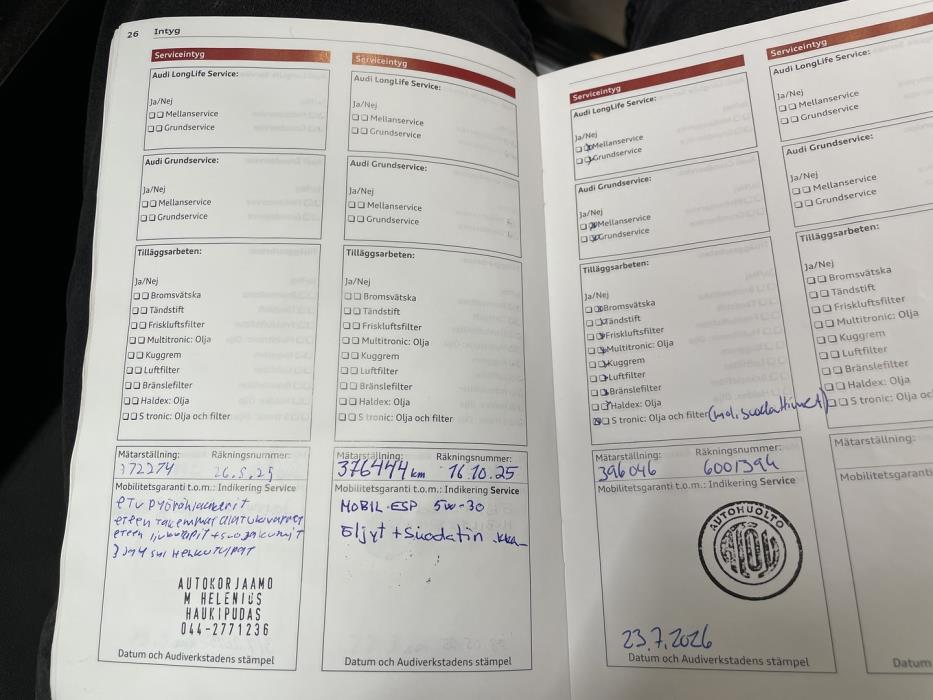 26 Intyg
Serviceintyg
Audi LongLife Service:
Ja/Nej
Mellanservice
Grundservice
Audi Grundservice:
Ja/Nej
Mellanservice
Grundservice
Tilläggsarbeten:
Ja/Nej
Bromsvätska
Tändstift
Friskluftsfilter
Multitronic: Olja
Kuggrem
Luftfilter
Bränslefilter
Haldex: Olja
S tronic: Olja och filter
Mätarställning: Räkningsnummer:
372274 26.5.25
Mobilitetsgaranti t.o.m.: Indikering Service
ETU PYÖRÖNLAAKERIT
ETEEN TAKEMMAT ALATUKIVARRET
ETEEN
AUTOKORJAAMO
M HELENIUS
HAUKIPUDAS
044-2771236
Datum och Audiverkstadens stämpel
Serviceintyg
Audi LongLife Service:
Ja/Nej
Mellanservice
Grundservice
Audi Grundservice:
Ja/Nej
Mellanservice
Grundservice
Tilläggsarbeten:
Ja/Nej
Bromsvätska
Tändstift
Friskluftsfilter
Multitronic: Olja
Kuggrem
Luftfilter
Bränslefilter
Haldex: Olja
S tronic: Olja och filter
Mätarställning: Räkningsnummer:
376444 km 16.10.25
Mobilitetsgaranti t.o.m.: Indikering Service
MOBIL ESP 5W-30
Öljyt + Suodatin
Datum och Audiverkstadens stämpel
Serviceintyg
Audi LongLife Service:
Ja/Nej
Mellanservice
Grundservice
Audi Grundservice:
Ja/Nej
Mellanservice
Grundservice
Tilläggsarbeten:
Ja/Nej
Bromsvätska
Tändstift
Friskluftsfilter
Multitronic: Olja
Kuggrem
Luftfilter
Bränslefilter
Haldex: Olja
S tronic: Olja och filter (mol. suodattimet)
Mätarställning: Räkningsnummer:
396046 6001394
Mobilitetsgaranti t.o.m.: Indikering Service
AUTOHUOLTO
23.7.2026
Datum och Audiverkstadens stämpel
Serviceintyg
Audi LongLife Service:
Ja/Nej
Mellanservice
Grundservice
Audi Grundservice:
Ja/Nej
Mellanservice
Grundservice
Tilläggsarbeten:
Ja/Nej
Bromsvätska
Tändstift
Friskluftsfilter
Multitronic: Olja
Kuggrem
Luftfilter
Bränslefilter
Haldex: Olja
S tronic: Olja oc
Mätarställning:
Mobilitetsgaranti
Datum